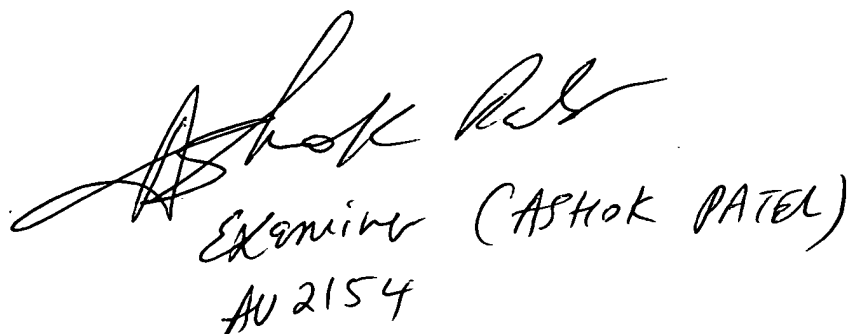 Ashok Patel
Examiner (ASHOK PATEL)
AU 2154